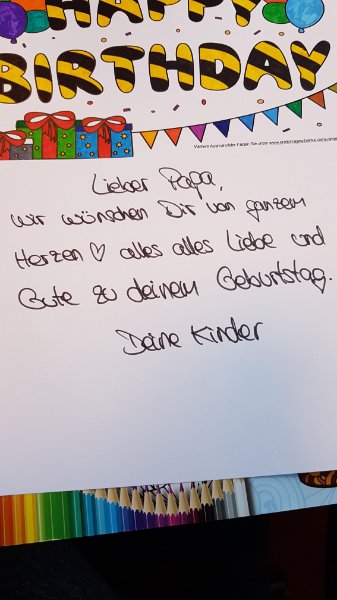 HAPPY
BIRTHDAY
Lieber Papa,
wir wünschen Dir von ganzem
Herzen ♡ alles alles Liebe und
Gute zu deinem Geburtstag.
Deine Kinder